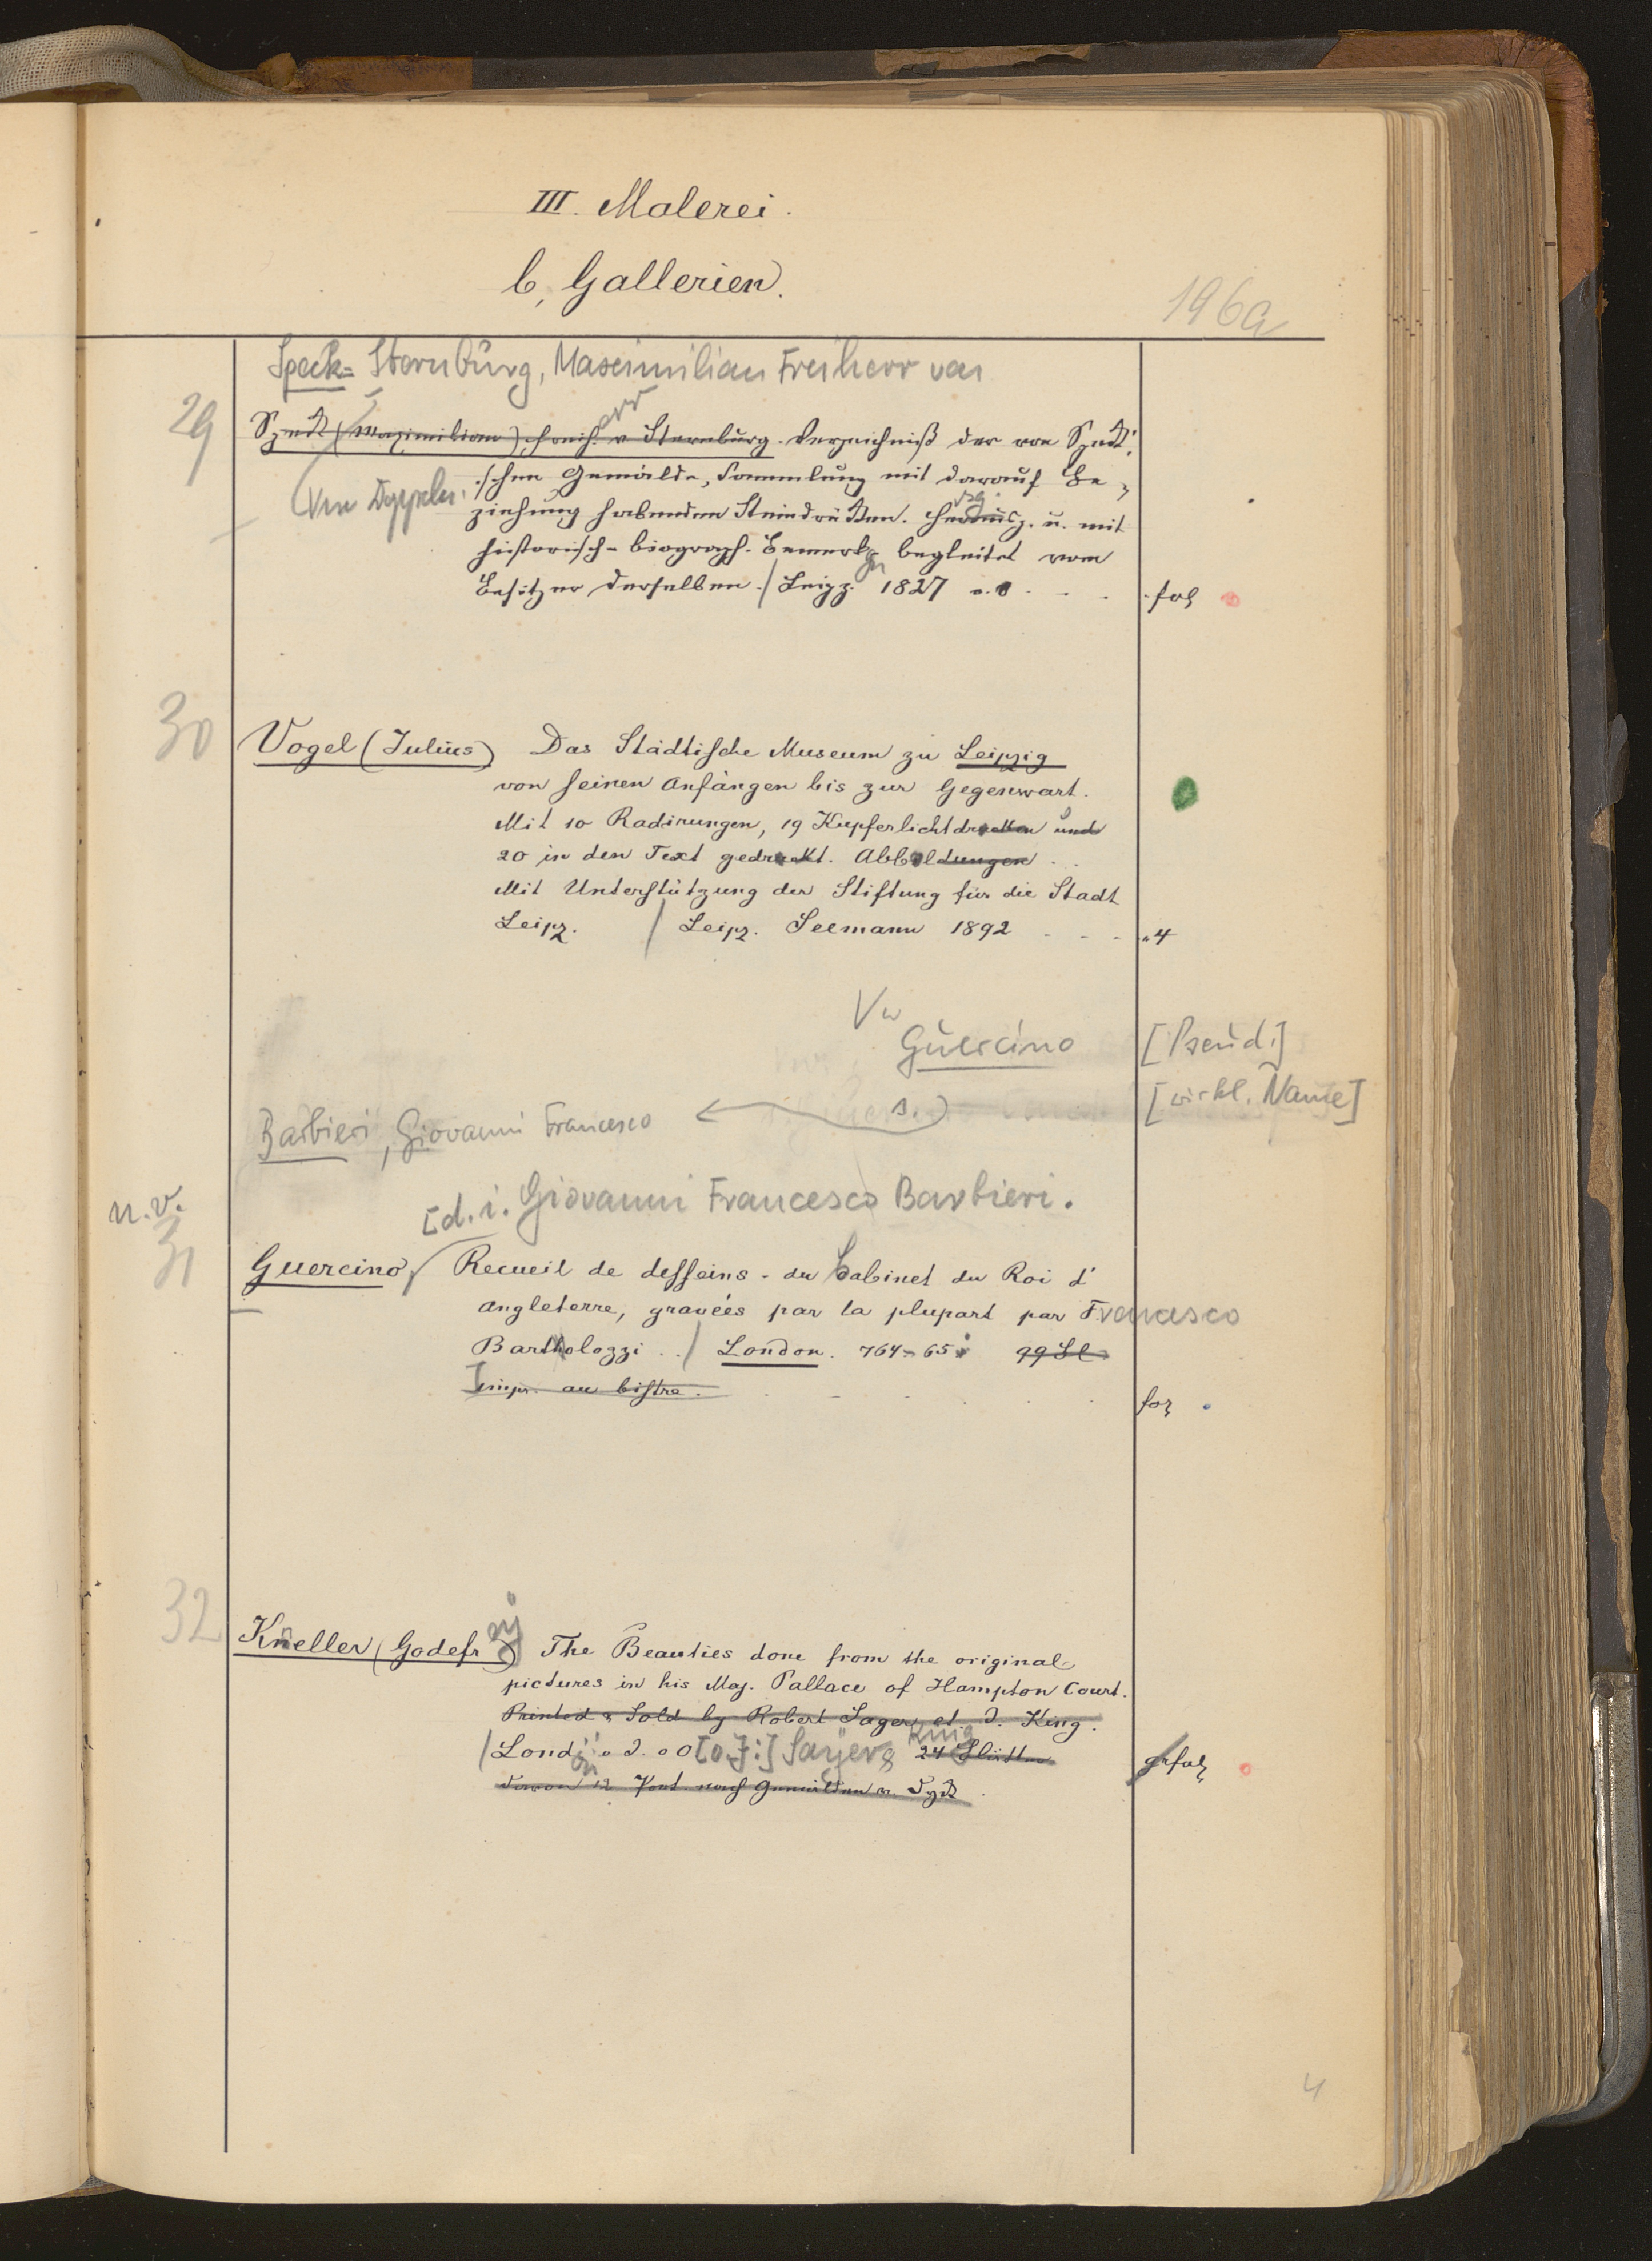 III. Malerei.
b, Gallerien.
196a
Speck-Sternbürg, Maximilian Freiherr von
29
Speck (Maximilian), Freih. v Sternburg. Verzeichniß der von Speck'
schen Gemälde, Sammlung mit darauf Be-
ziehung habenden Steindrücken. Herausg. u. mit
historisch-biograph. Bemerkgn begleitet vom
Besitzer derselben. / Leipz. 1827
fol
30
Vogel (Julius) Das Städtische Museum zu Leipzig
von seinen Anfängen bis zur Gegenwart.
Mit 10 Radirungen, 19 Kupferlichtdrucken und
20 in den Text gedruckt. Abbildungen
Mit Unterstützung der Stiftung für die Stadt
Leipz. / Leipz. Seemann 1892 4
Vw
Guercino [Pseud.]
s.) [wirkl. Name]
Barbieri, Giovanni Francesco
n.v. [d. i. Giovanni Francesco Barbieri.
31
Guercino, Recueil de desseins - du Cabinet du Roi d'
Angleterre, gravées par la plupart par Francesco
Bartholozzi .. / London. 764-65. 99 Bl.
Impr. au bistre.
fol
32
Kneller (Godefrey) The Beauties done from the original
pictures in his Maj. Pallace of Hampton Court.
Printed & Sold by Robert Sayer et J. King.
/ Lond o J. [o. J.:] Sayer & King 24 Blätter
davon 12 Port. nach Gemälden v. Dyck
grfol
4